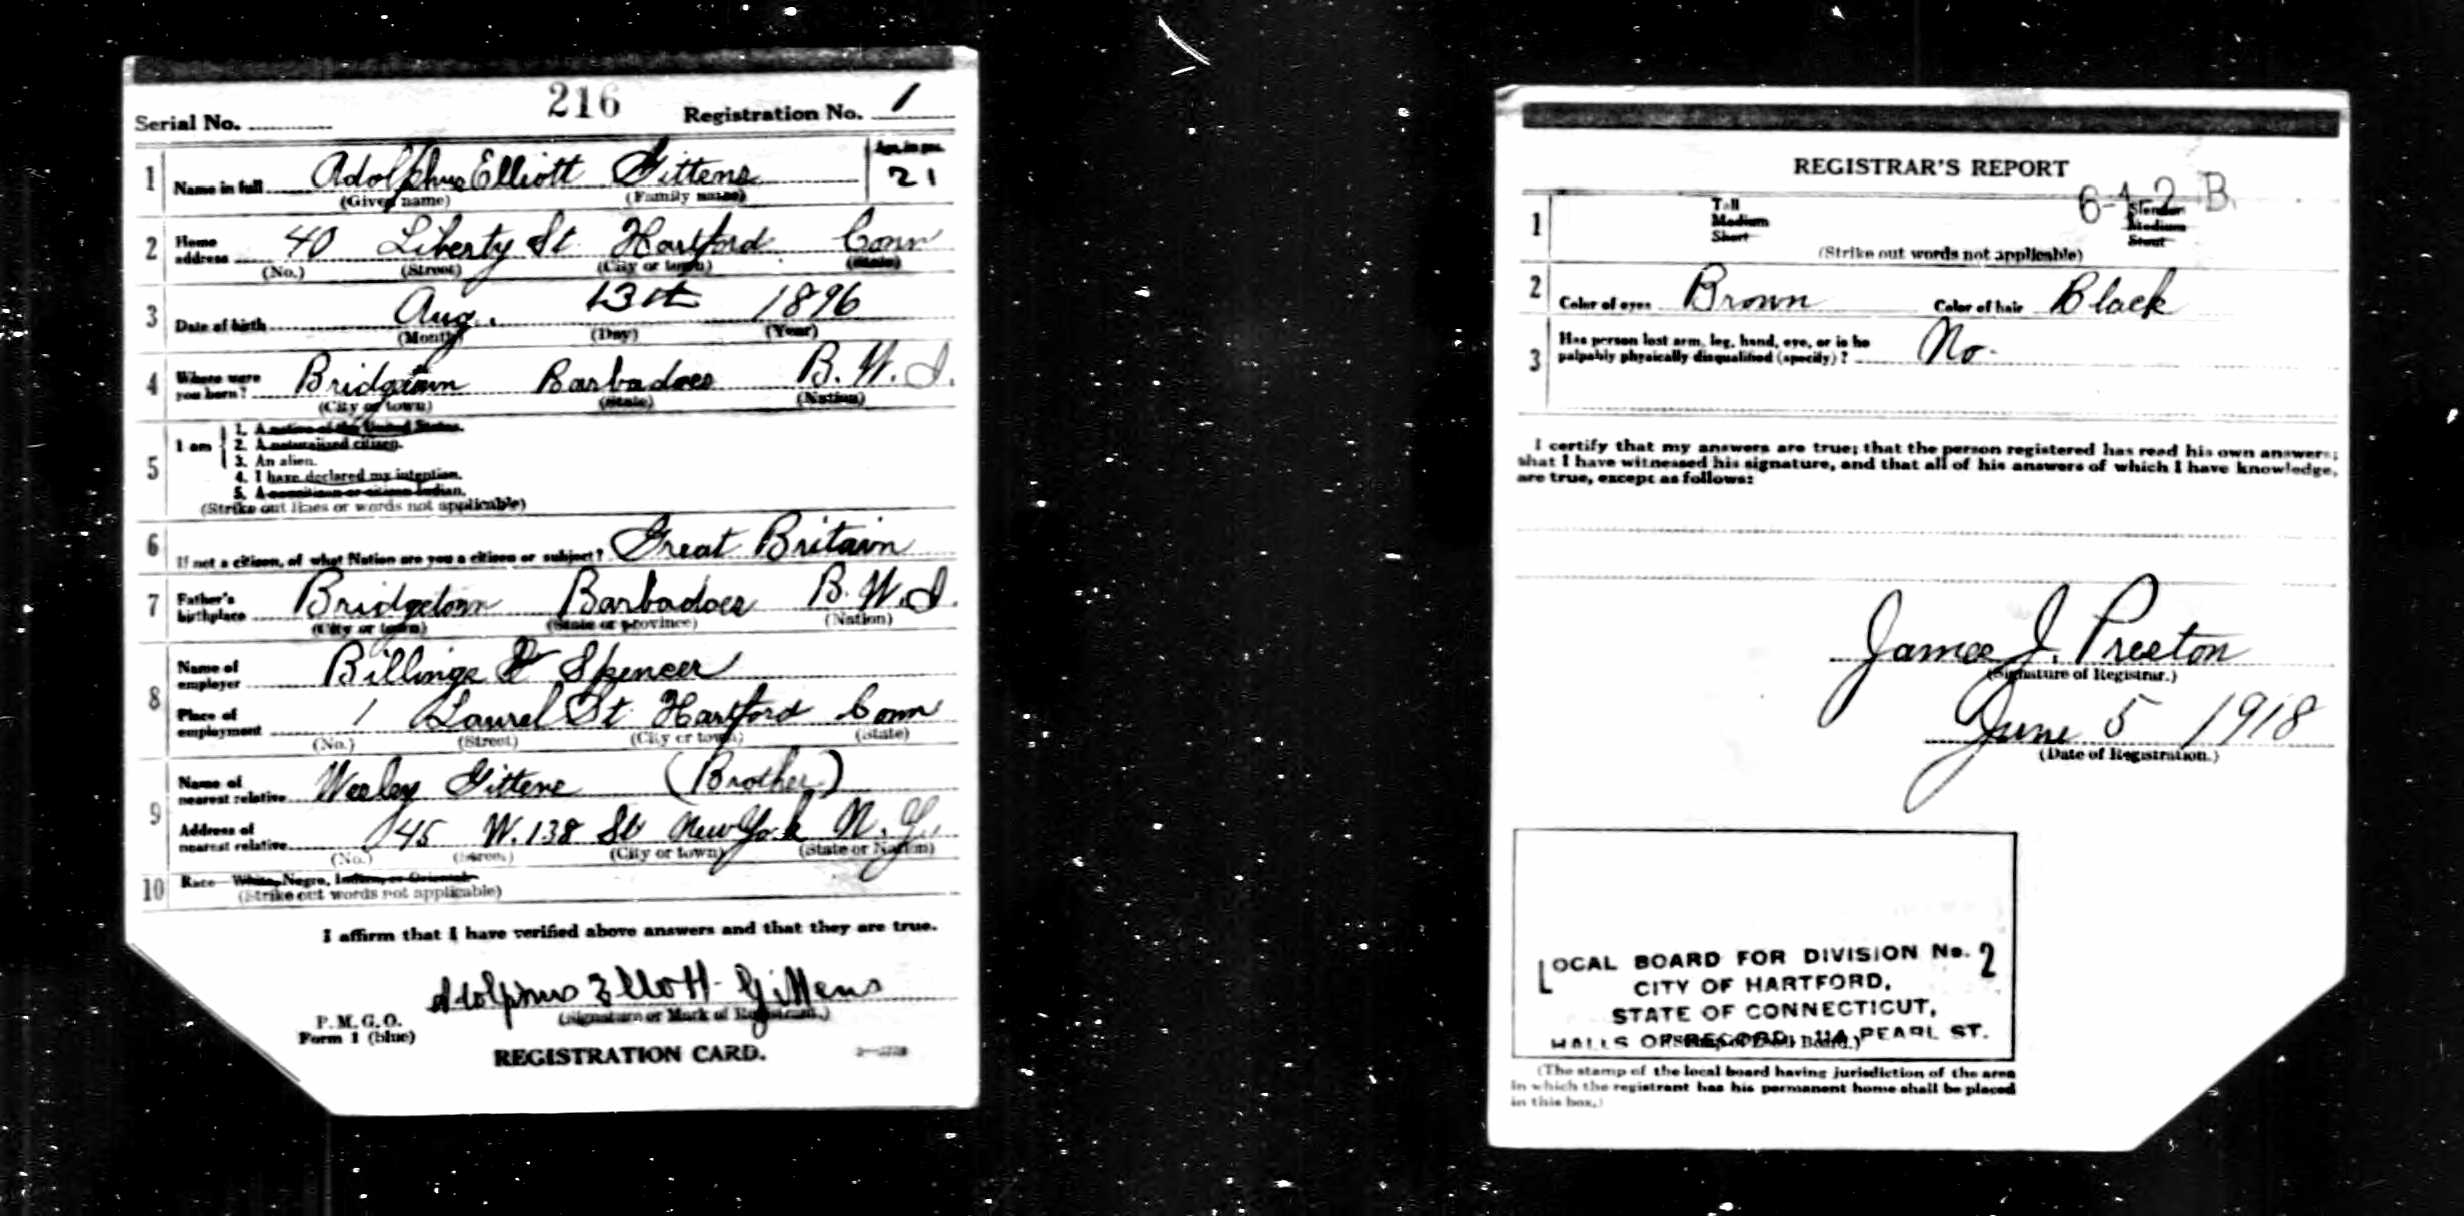 216
Serial No. ............ Registration No. 1
1 Name in full Adolphus Elliott Gittens Age, in yrs. 21
(Given name) (Family name)
2 Home address 40 Liberty St. Hartford Conn
(No.) (Street) (City or town) (State)
3 Date of birth Aug. 13th 1896
(Month) (Day) (Year)
4 Where were you born? Bridgetown Barbadoes B. W. I.
(City or town) (State) (Nation)
5 I am
1. A native of the United States.
2. A naturalized citizen.
3. An alien.
4. I have declared my intention.
5. A noncitizen or citizen Indian.
(Strike out lines or words not applicable)
6 If not a citizen, of what Nation are you a citizen or subject? Great Britain
7 Father's birthplace Bridgetown Barbadoes B. W. I.
(City or town) (State or province) (Nation)
8 Name of employer Billings & Spencer
Place of employment 1 Laurel St. Hartford Conn
(No.) (Street) (City or town) (State)
9 Name of nearest relative Wesley Gittens (Brother)
Address of nearest relative 145 W. 138 St New York N. Y.
(No.) (Street) (City or town) (State or Nation)
10 Race—White, Negro, Indian, or Oriental
(Strike out words not applicable)
I affirm that I have verified above answers and that they are true.
Adolphus Elliott Gittens
(Signature or Mark of Registrant.)
P. M. G. O.
Form 1 (blue)
REGISTRATION CARD.
REGISTRAR'S REPORT
6-1-2 B.
1 Tall Slender
Medium Medium
Short Stout
(Strike out words not applicable)
2 Color of eyes Brown Color of hair Black
3 Has person lost arm, leg, hand, eye, or is he
palpably physically disqualified (specify)? No.
I certify that my answers are true; that the person registered has read his own answers;
that I have witnessed his signature, and that all of his answers of which I have knowledge,
are true, except as follows:
James J. Preston
(Signature of Registrar.)
June 5 1918
(Date of Registration.)
LOCAL BOARD FOR DIVISION No. 2
CITY OF HARTFORD,
STATE OF CONNECTICUT,
HALLS OF RECORD, PEARL ST.
(The stamp of the local board having jurisdiction of the area
in which the registrant has his permanent home shall be placed
in this box.)